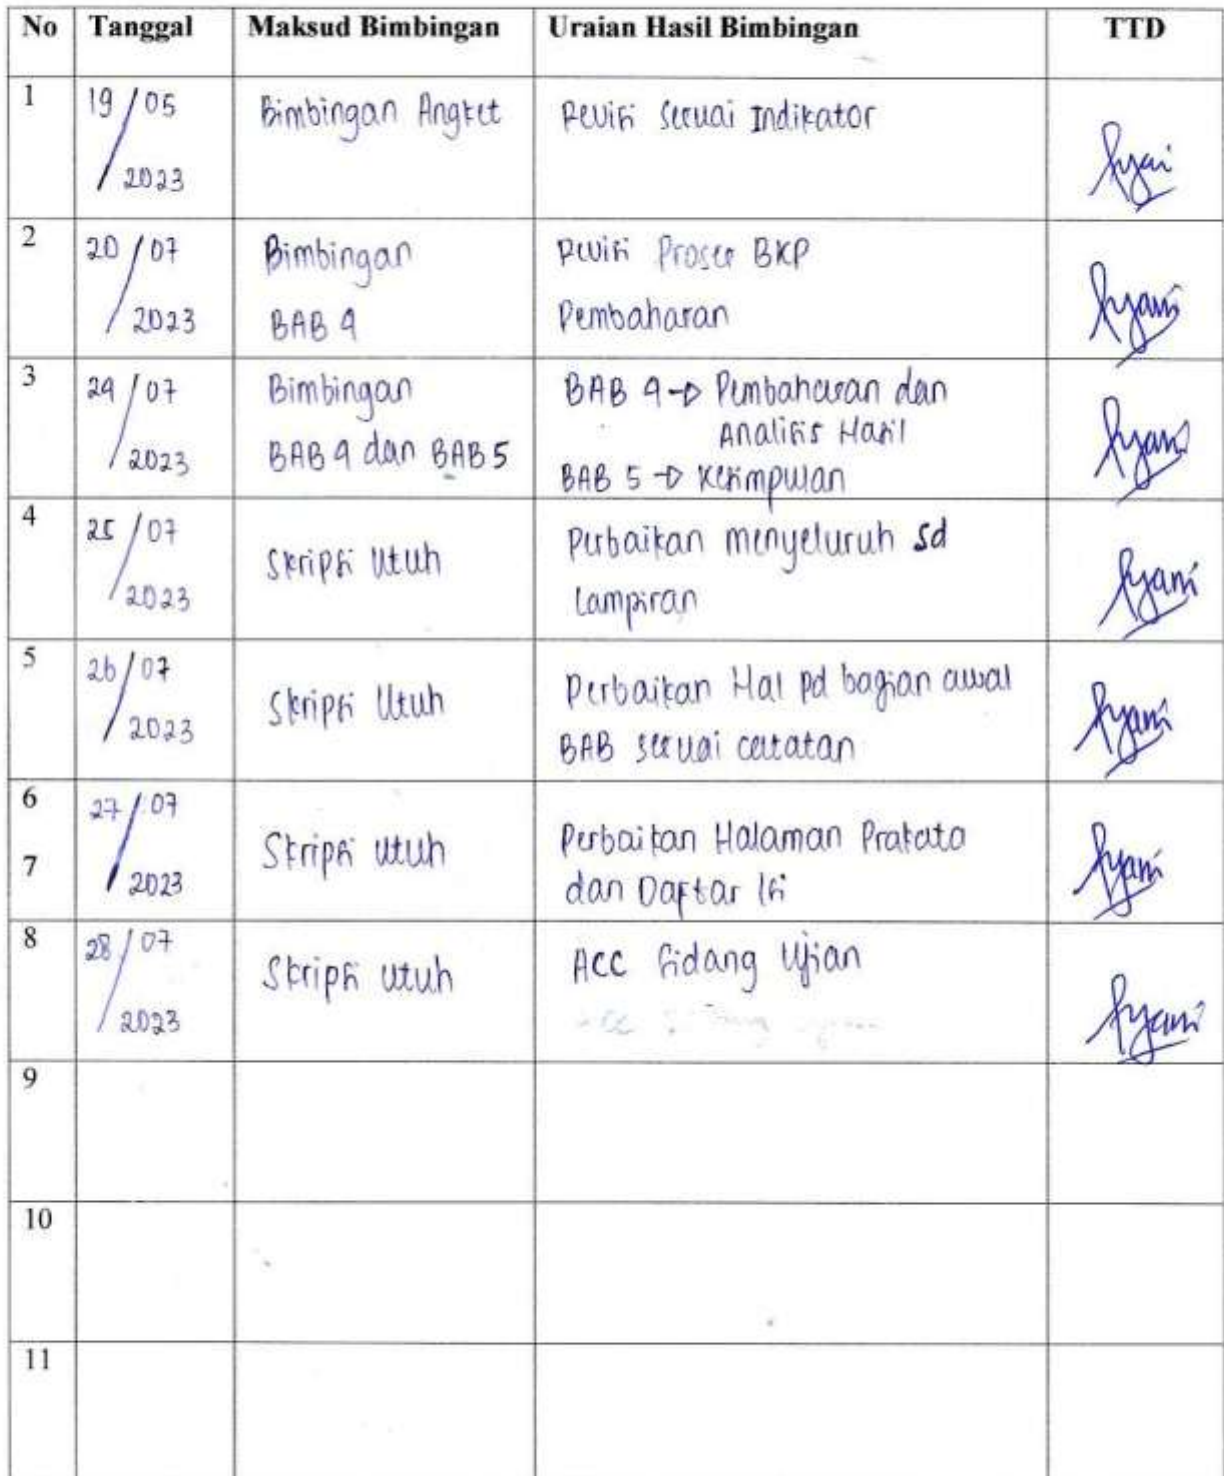 No Tanggal Maksud Bimbingan Uraian Hasil Bimbingan TTD
1 19/05 2023 Bimbingan Angket Revisi Sesuai Indikator
2 20/07 2023 Bimbingan Revisi Proses BKP
BAB 4 Pembahasan
3 24/07 2023 Bimbingan BAB 4 → Pembahasan dan
BAB 4 dan BAB 5 Analisis Hasil
BAB 5 → Kesimpulan
4 25/07 2023 Skripsi Utuh Perbaikan menyeluruh sd
Lampiran
5 26/07 2023 Skripsi Utuh Perbaikan Hal pd bagian awal
BAB sesuai catatan
6 27/07 2023 Skripsi Utuh Perbaikan Halaman Prakata
7 dan Daftar Isi
8 28/07 2023 Skripsi Utuh ACC Sidang Ujian
9
10
11